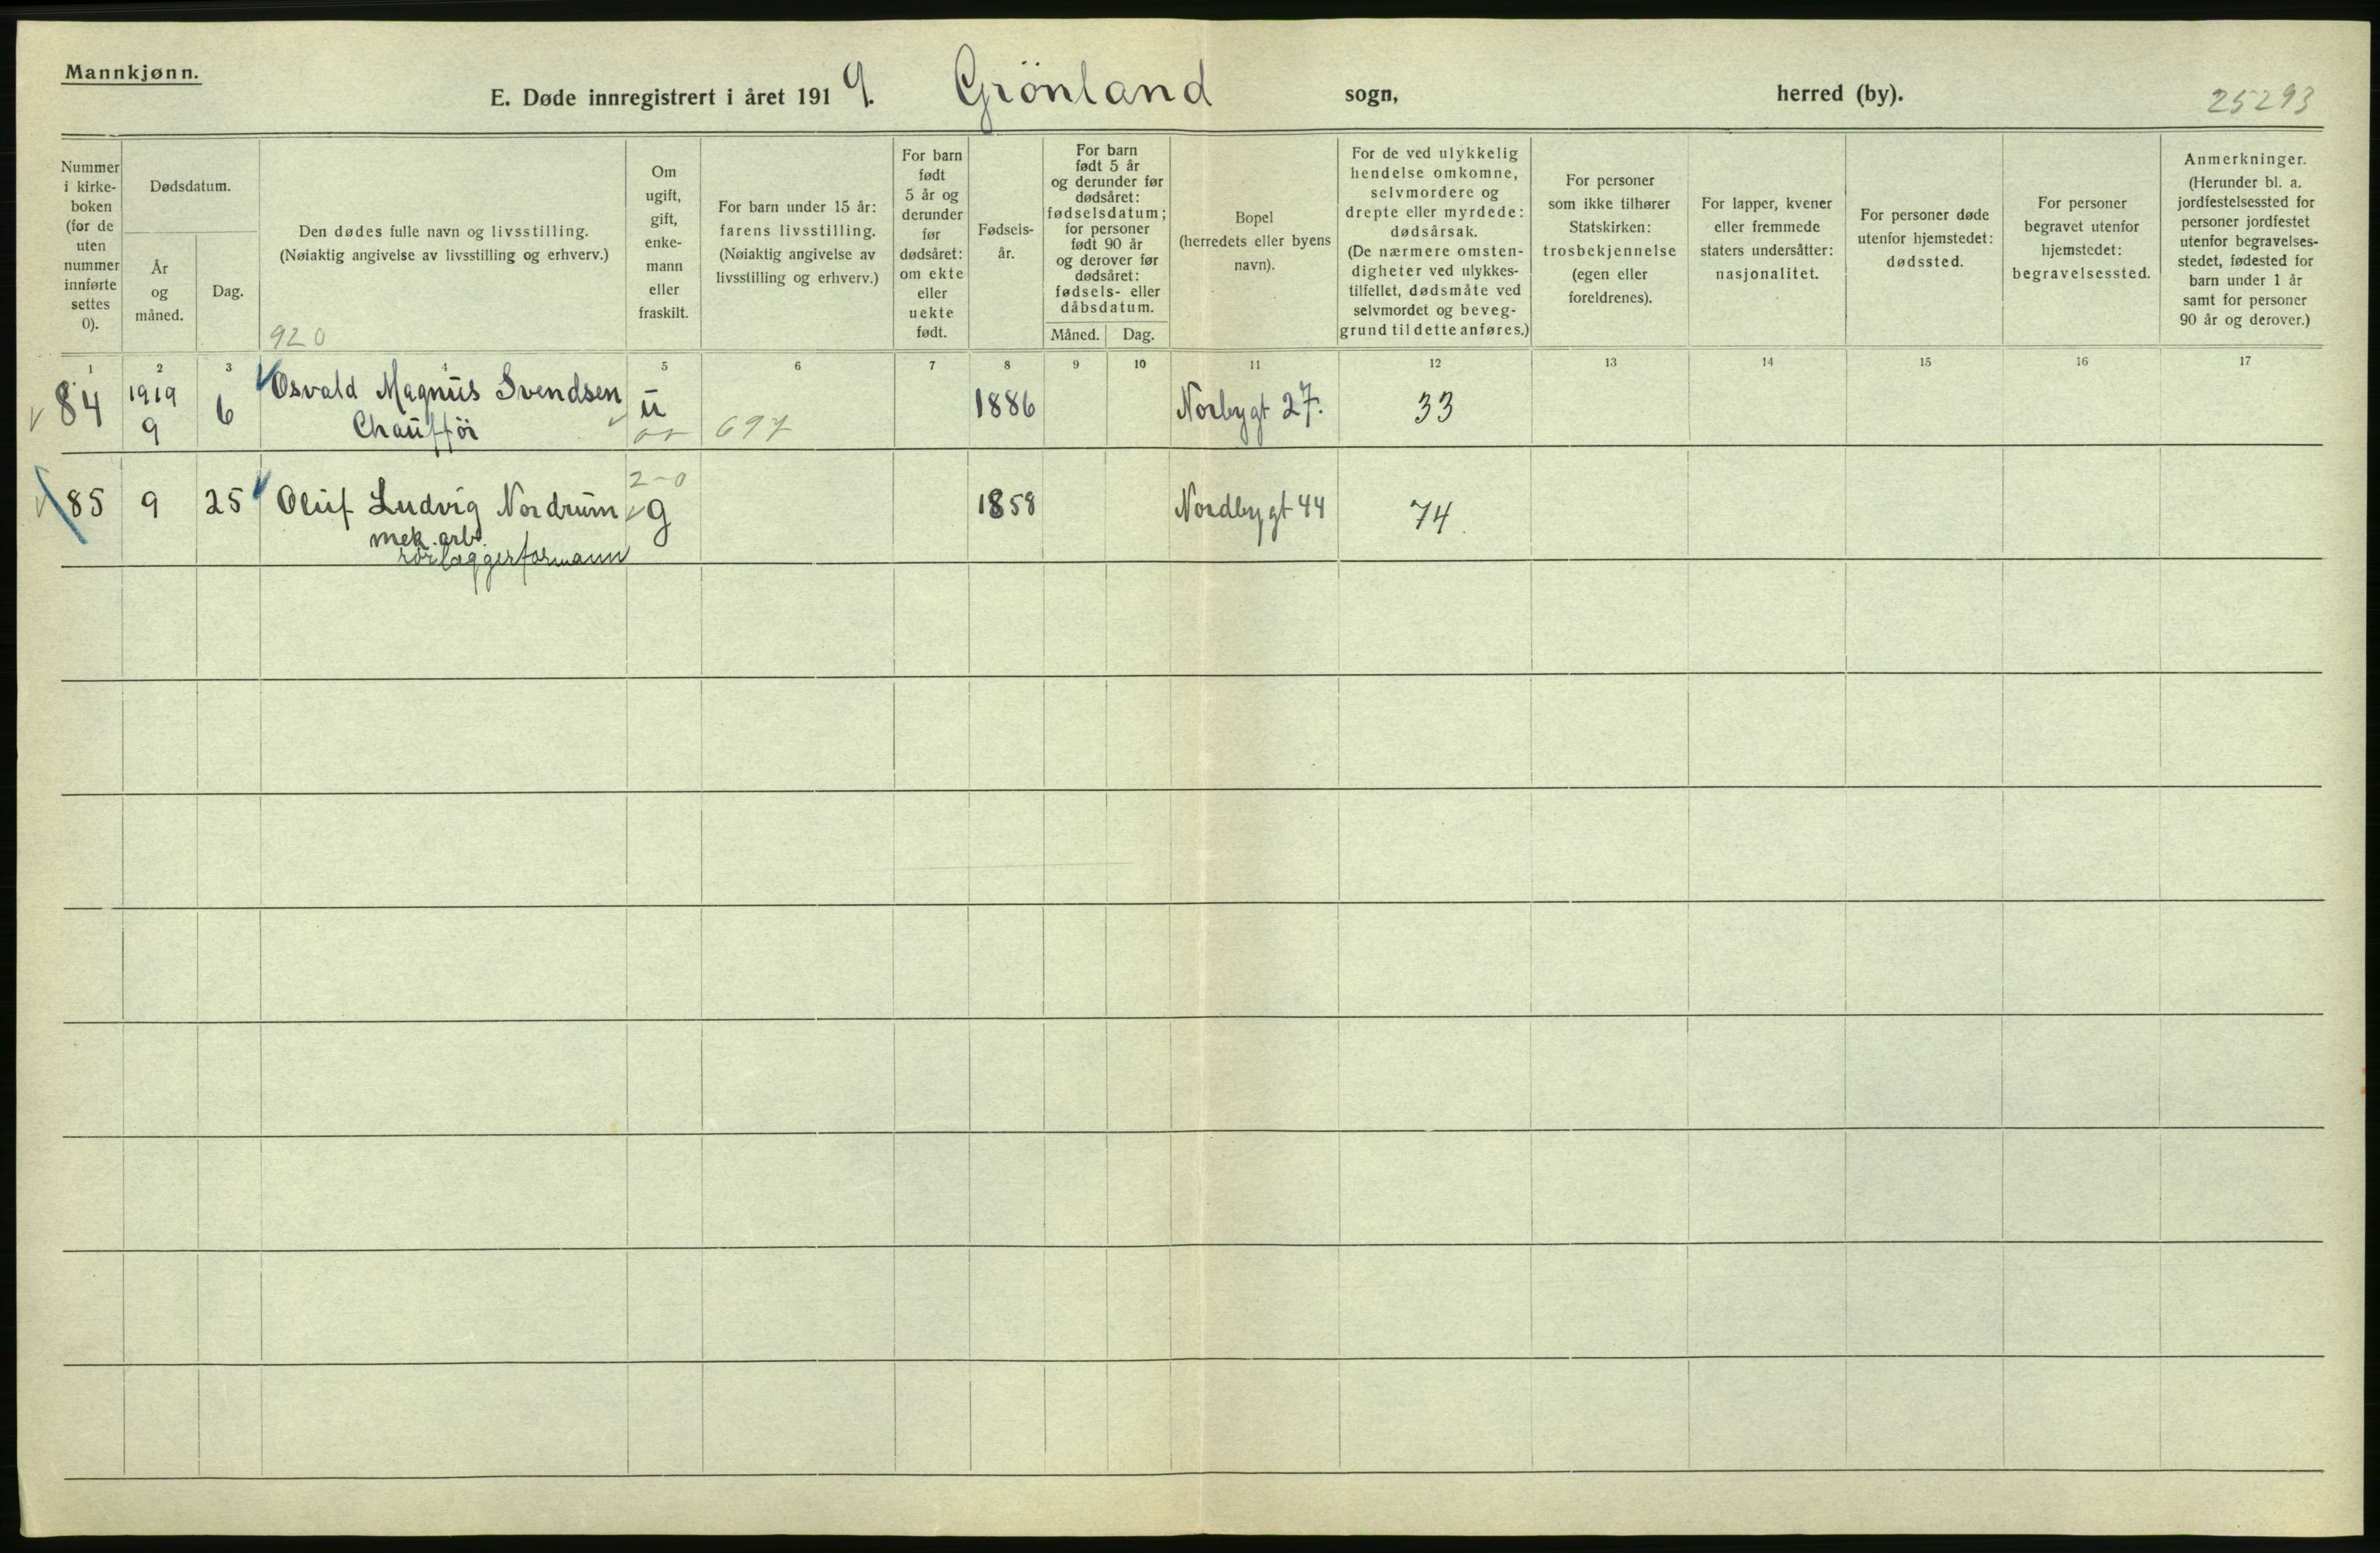 Mannkjønn.
E. Døde innregistrert i året 1919. Grönland sogn, herred (by). 25293
Nummer
i kirke-
boken
(for de
uten
nummer
innførte
settes
0).
Dødsdatum.
År
og
måned.
Dag.
Den dødes fulle navn og livsstilling.
(Nøiaktig angivelse av livsstilling og erhverv.)
920
Om
ugift,
gift,
enke-
mann
eller
fraskilt.
For barn under 15 år:
farens livsstilling.
(Nøiaktig angivelse av
livsstilling og erhverv.)
For barn
født
5 år og
derunder
før
dødsåret:
om ekte
eller
uekte
født.
Fødsels-
år.
For barn
født 5 år
og derunder før
dødsåret:
fødselsdatum;
for personer
født 90 år
og derover før
dødsåret:
fødsels- eller
dåbsdatum.
Måned. Dag.
Bopel
(herredets eller byens
navn).
For de ved ulykkelig
hendelse omkomne,
selvmordere og
drepte eller myrdede:
dødsårsak.
(De nærmere omsten-
digheter ved ulykkes-
tilfellet, dødsmåte ved
selvmordet og beveg-
grund til dette anføres.)
For personer
som ikke tilhører
Statskirken:
trosbekjennelse
(egen eller
foreldrenes).
For lapper, kvener
eller fremmede
staters undersåtter:
nasjonalitet.
For personer døde
utenfor hjemstedet:
dødssted.
For personer
begravet utenfor
hjemstedet:
begravelsessted.
Anmerkninger.
(Herunder bl. a.
jordfestelsessted for
personer jordfestet
utenfor begravelses-
stedet, fødested for
barn under 1 år
samt for personer
90 år og derover.)
1 2 3 4 5 6 7 8 9 10 11 12 13 14 15 16 17
84 1919 9 6 Osvald Magnus Svendsen u 697 1886 Norbygt 27. 33
Chaufför
2-0
85 9 25 Oluf Ludvig Nordrum g 1858 Nordbygt 44 74.
mek. arb.
rörlæggerformann